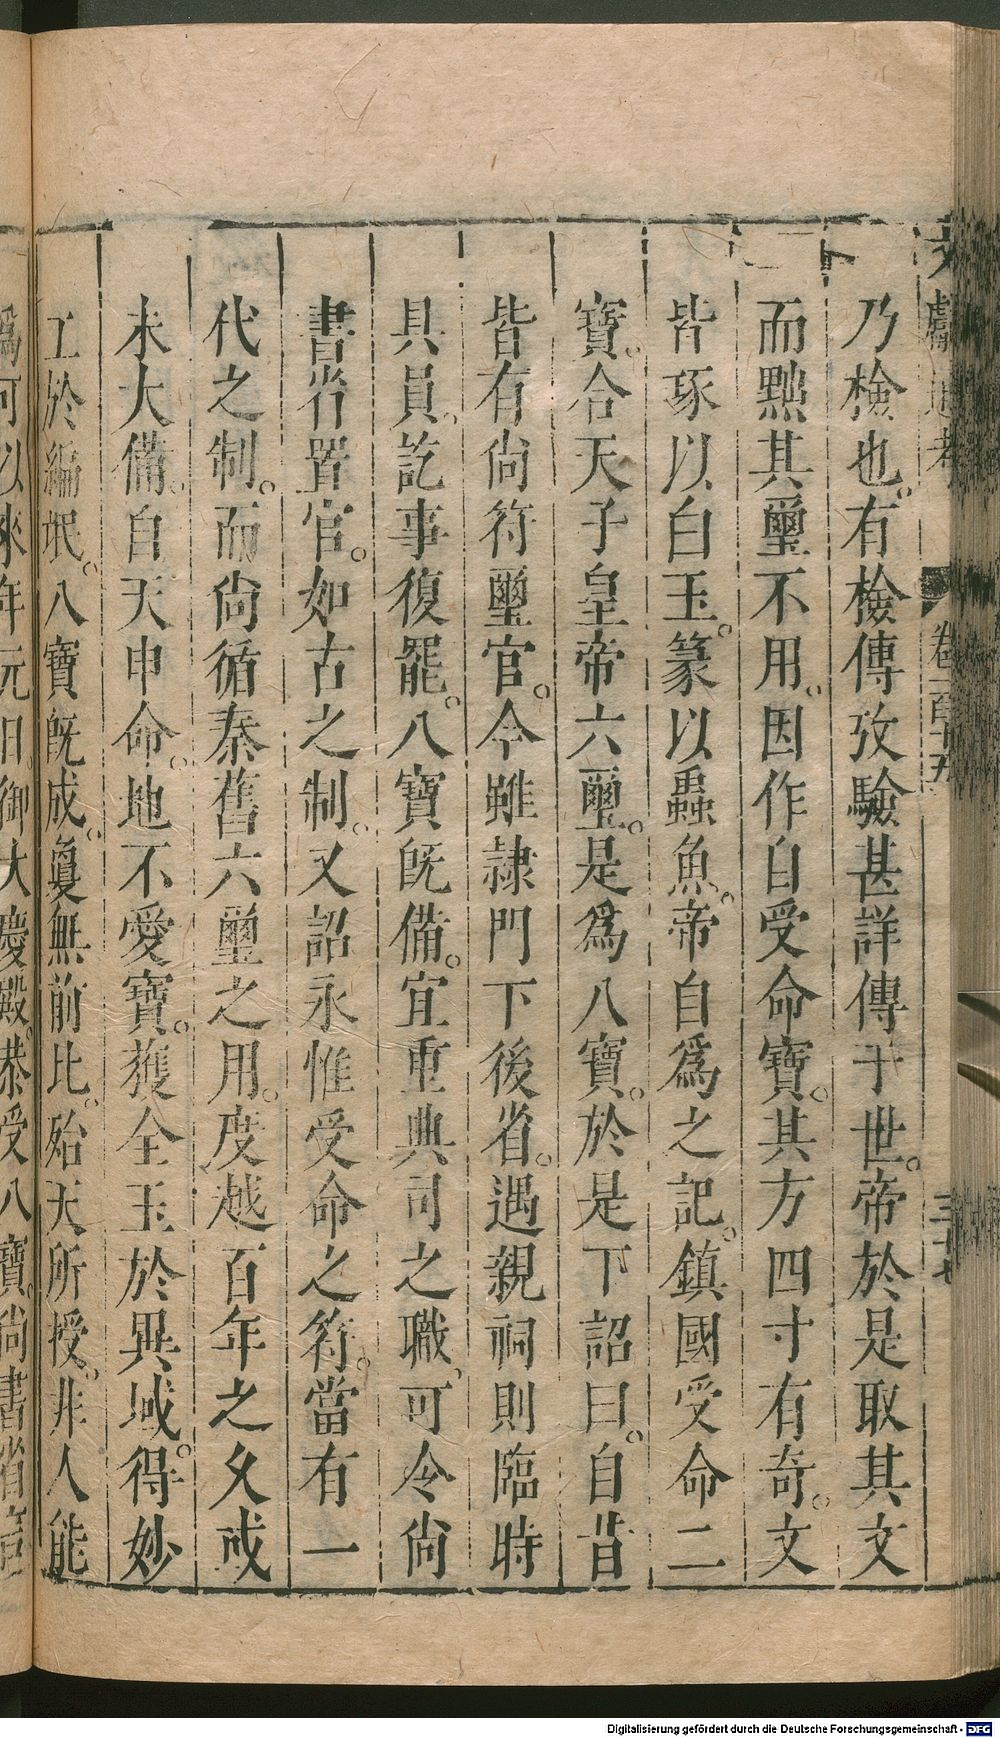 文獻通考 卷一百十五
乃檢也。有檢傳攷驗甚詳傳于世。帝於是取其文
而黜其璽不用。因作自受命寶。其方四寸有奇。文
皆琢以白玉。篆以蟲魚。帝自爲之記。鎮國受命二
寶。合天子皇帝六璽。是爲八寶。於是下詔曰。自昔
皆有尚符璽官。今雖隷門下後省。遇親祠則臨時
具員。訖事復罷。八寶旣備。宜重典司之職。可令尚
書省置官。如古之制。又詔永惟受命之符。當有一
代之制。而尚循秦舊六璽之用。度越百年之久或
未大備。自天申命。地不愛寶。獲全玉於異域。得妙
工於編氓。八寶旣成。敻無前比。殆天所授。非人能
爲可以來年元日。御大慶殿。恭受八寶。尚書省言
Digitalisierung gefördert durch die Deutsche Forschungsgemeinschaft - DFG